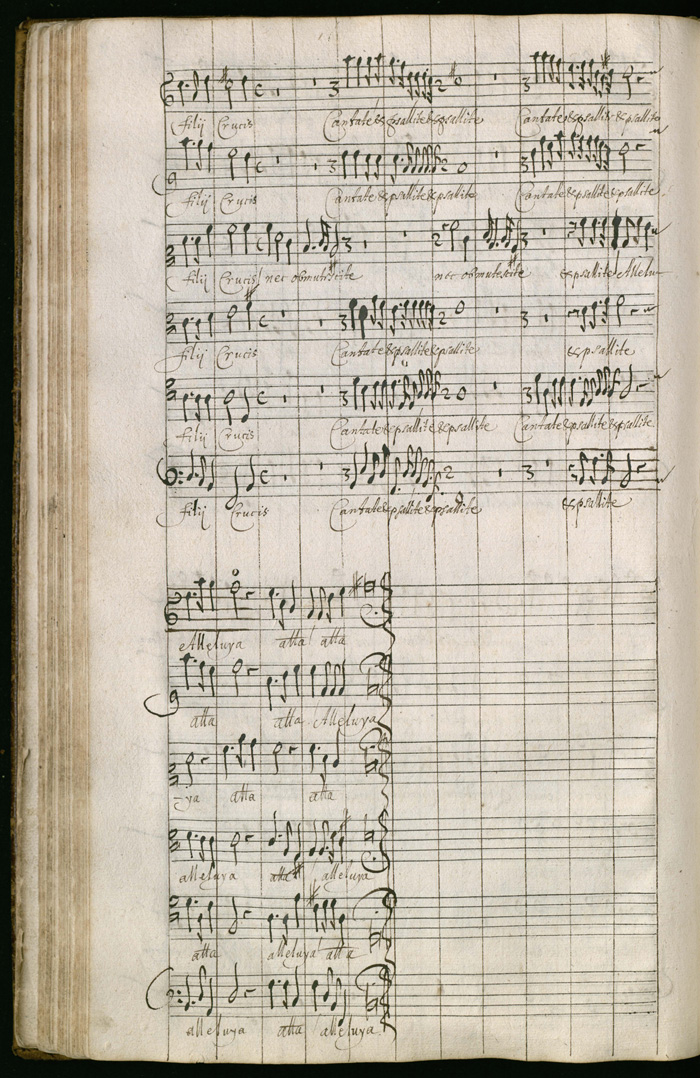 filij Crucis Cantate & psallite & psallite Cantate & psallite & psallite
filij Crucis Cantate & psallite & psallite Cantate & psallite & psallite
filij Crucis nec obmutescite nec obmutescite & psallite Allelu-
filij Crucis Cantate & psallite & psallite & psallite
filij Crucis Cantate & psallite & psallite Cantate & psallite & psallite
filij Crucis Cantate & psallite & psallite & psallite
Alleluya atta atta
atta atta Alleluya
-ya atta atta
alleluya atta alleluya
atta alleluya atta
alleluya atta alleluya